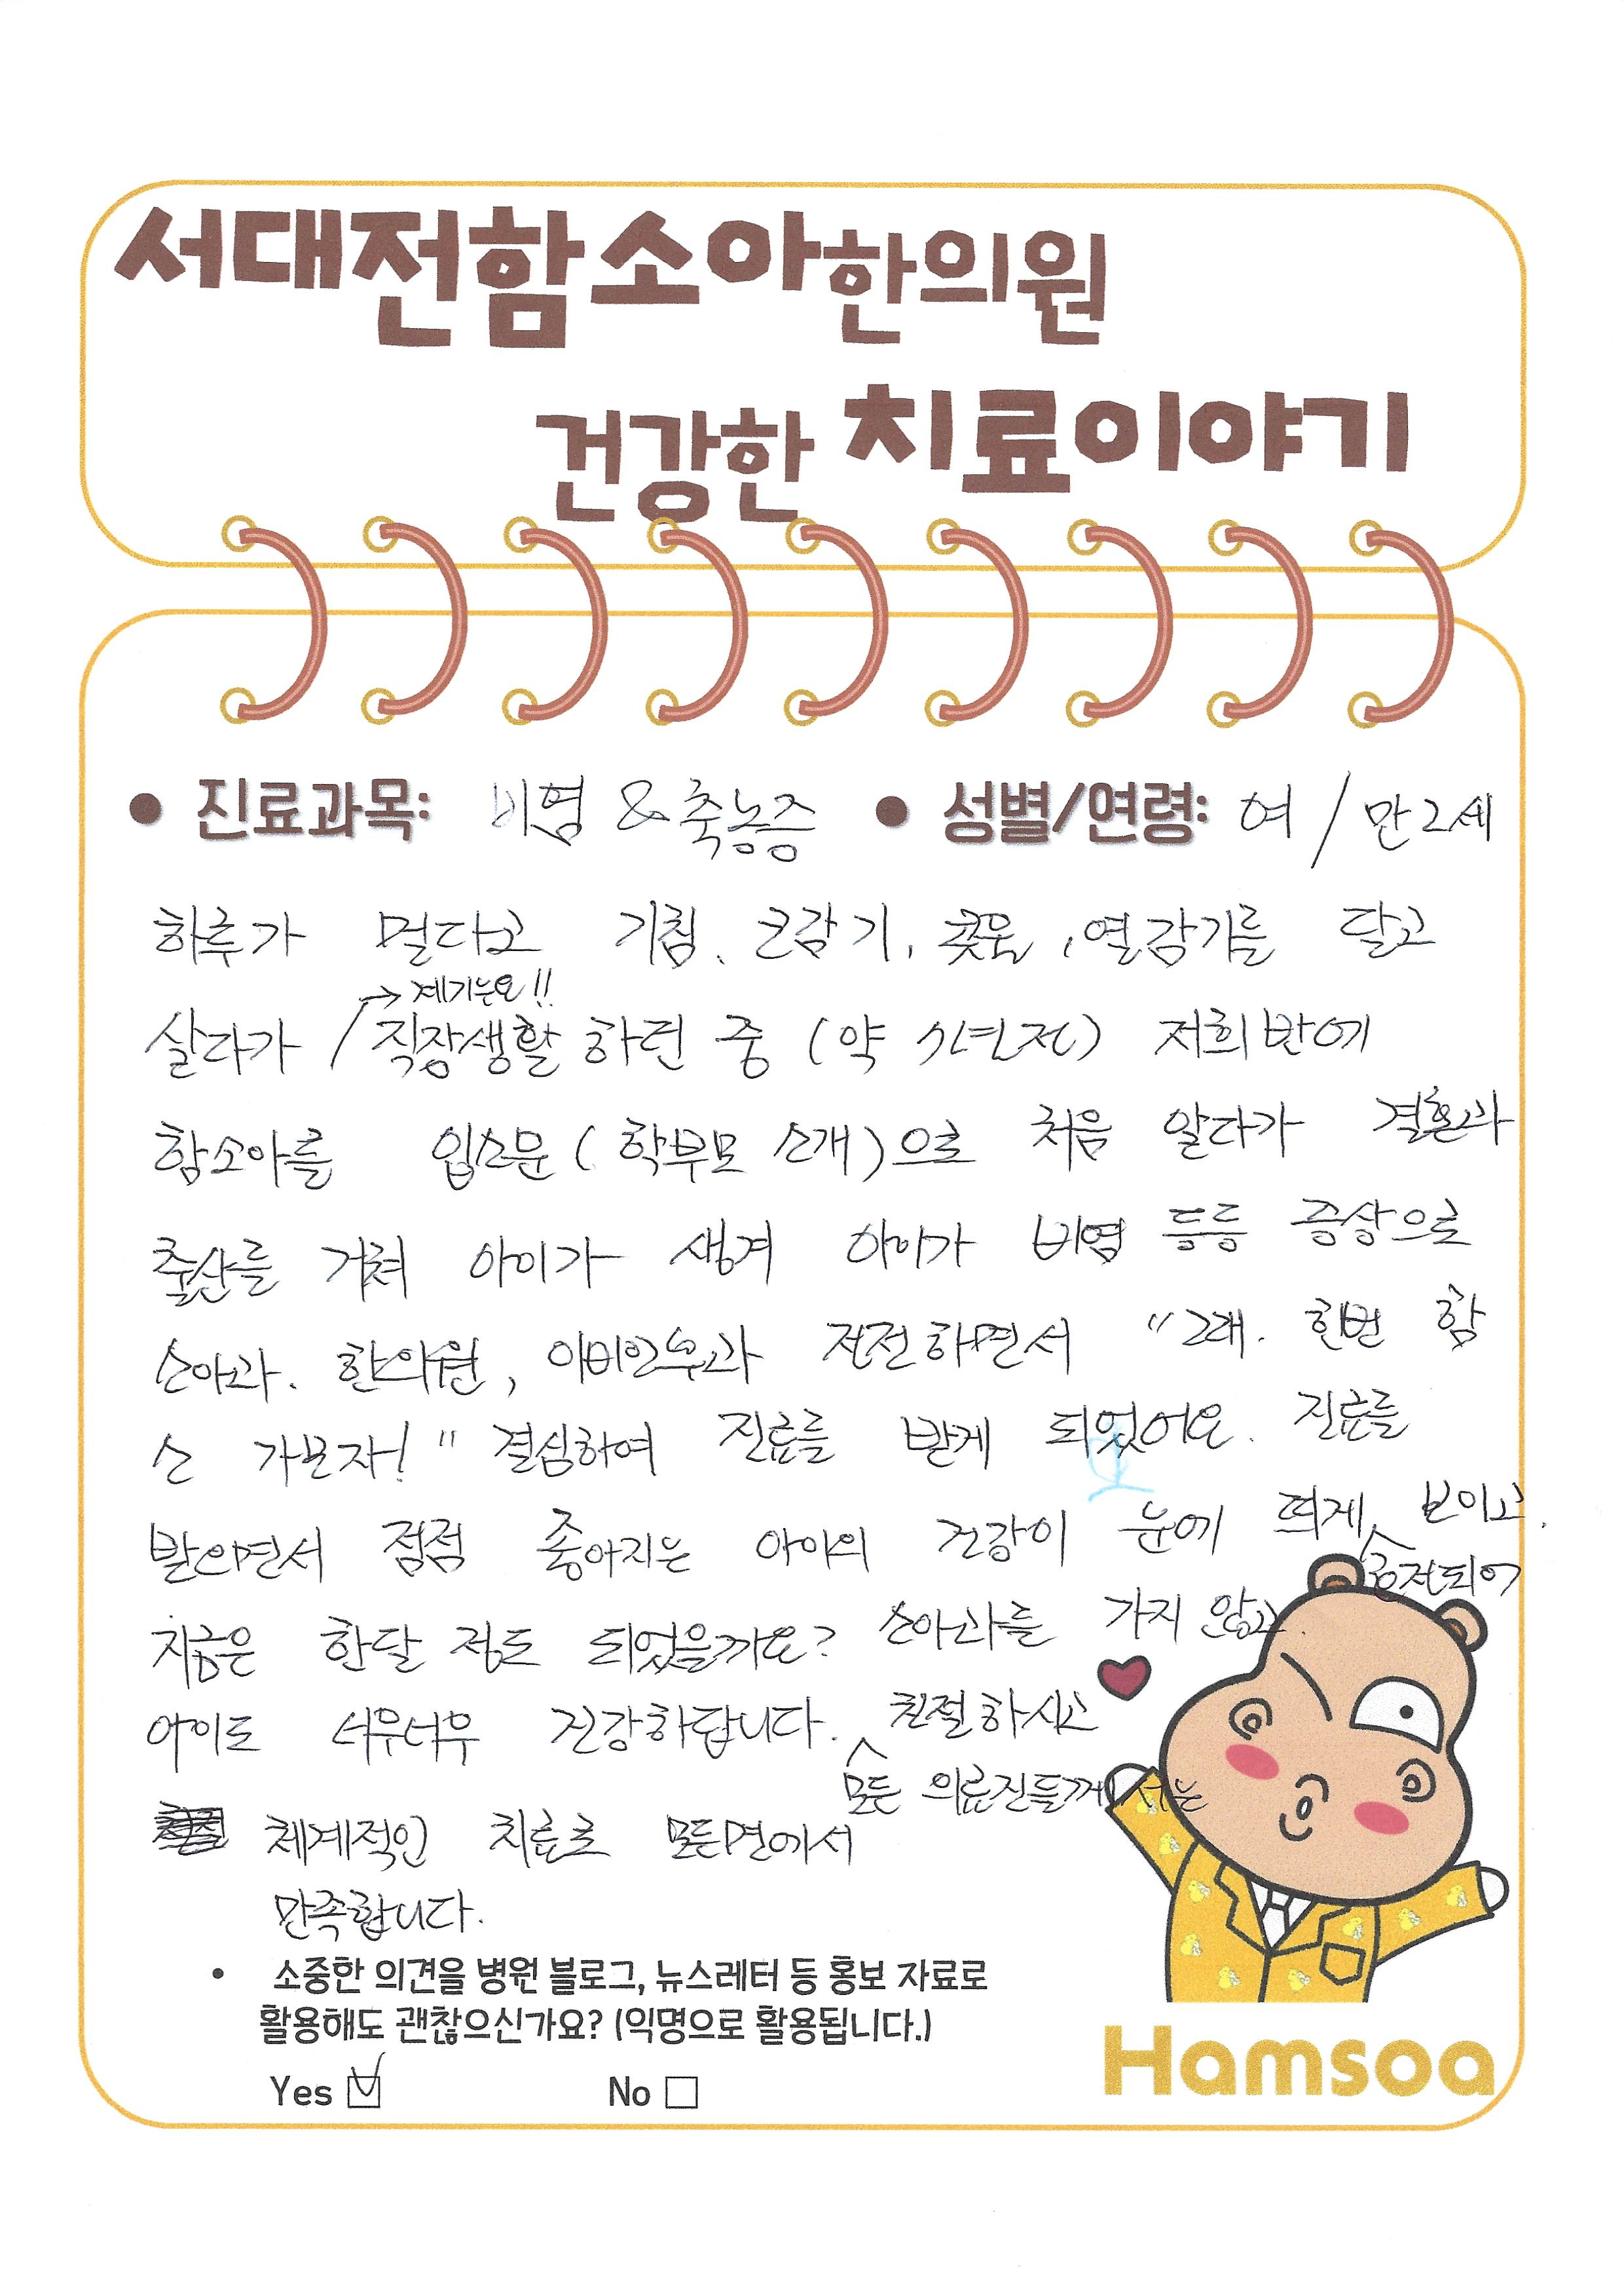 서대전함소아한의원
건강한 치료이야기
• 진료과목: 비염 & 축농증 • 성별/연령: 여 / 만2세
하루가 멀다고 기침, 코감기, 콧물, 열감기를 달고
→ 제기는요!!
살다가 / 직장생활 하던 중 (약 년전) 저희반에
함소아를 입소문(학부모 소개)으로 처음 알다가 결혼과
출산를 거쳐 아이가 생겨 아이가 비염 등등 증상으로
소아과, 한의원, 이비인후과 전전하면서 "그래. 한번 함
소 가보자!" 결심하여 진료를 받게 되었어요. 진료를
받으면서 점점 좋아지는 아이의 건강이 눈에 띄게 보이고,
호전되어
지금은 한달 정도 되었을까요? 소아과를 가지 않고,
아이도 너무너무 건강하답니다. 친절하시고
모든 의료진들께서는
체계적인 치료로 모든면에서
만족합니다.
• 소중한 의견을 병원 블로그, 뉴스레터 등 홍보 자료로
활용해도 괜찮으신가요? (익명으로 활용됩니다.)
Yes ☑ No ☐
Hamsoa